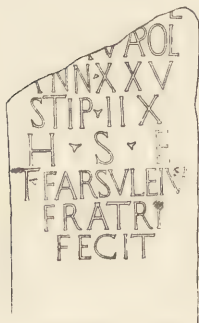 ANN·XXV
STIP·IIX
H · S · E
T FARSVLEIV
FRATRI
FECIT